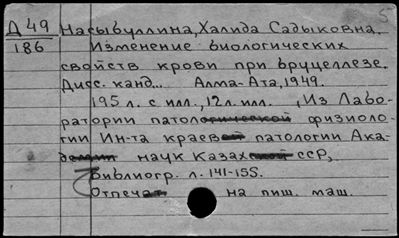 Д 49
186
Насыбуллина, Халида Садыковна.
Изменение биологических
свойств крови при бруцеллезе.
Дисс. канд... Алма-Ата, 1949.
195 л. с илл., 12 л. илл. (Из Лабо-
ратории патологической физиоло-
гии Ин-та краевой патологии Ака-
демии наук Казахской ССР,
Библиогр. л. 141-155.
Отпечат на пиш. маш.
5